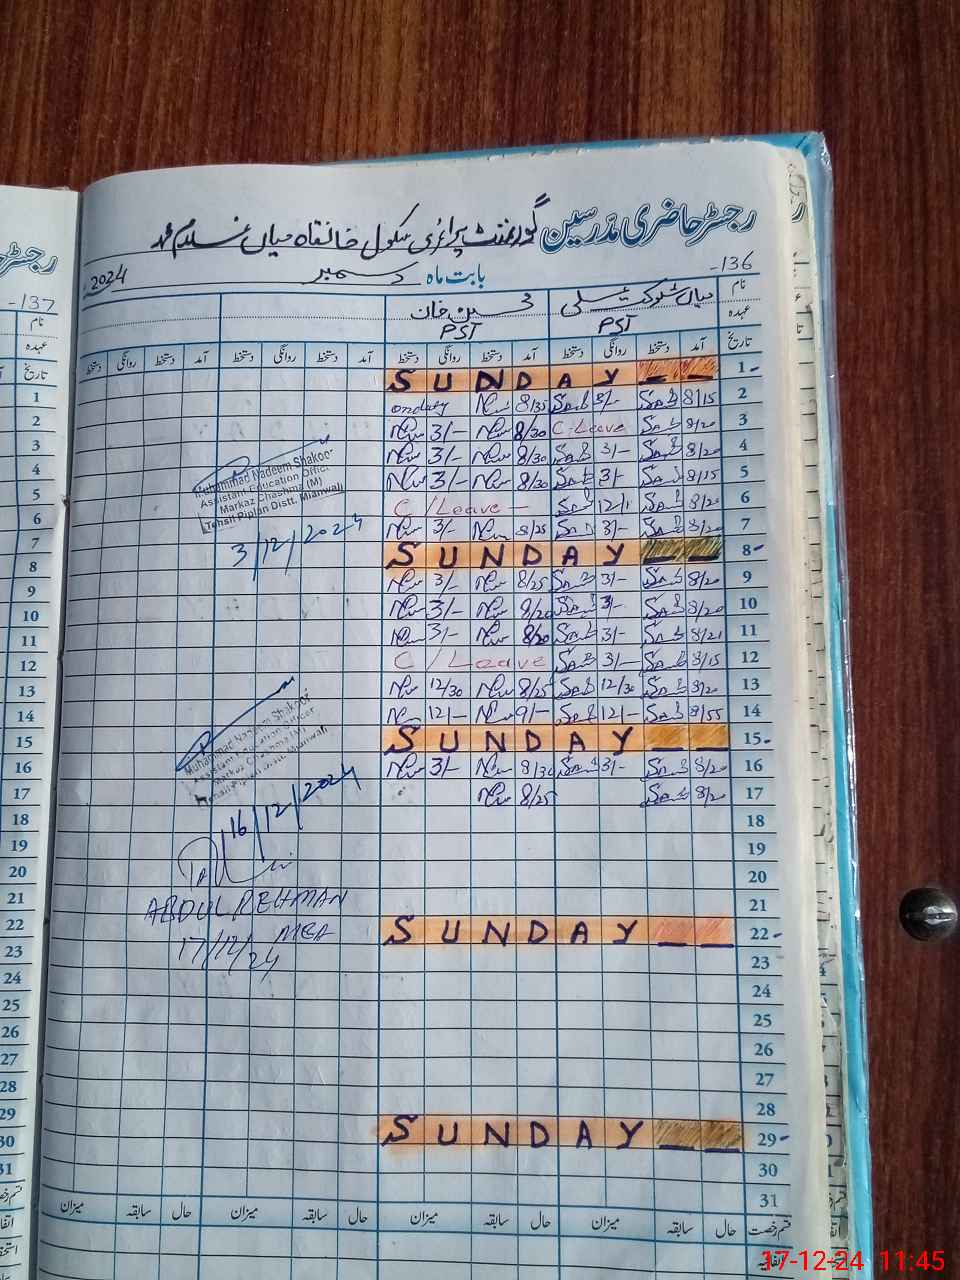 رجسٹر حاضری مدرسین گورنمنٹ پرائمری سکول خانقاہ میاں غلام محمد
136-
بابت ماہ دسمبر 2024
نام میاں شوکت علی خان
عہدہ PST PST
تاریخ آمد دستخط روانگی دستخط آمد دستخط روانگی دستخط آمد دستخط روانگی دستخط آمد دستخط روانگی دستخط
SUNDAY 1
onduty 8/35 3/- 8/15 2
3/- 8/30 C-Leave 8/20 3
3/- 8/30 3/- 8/20 4
3/- 8/30 3/- 8/15 5
C/Leave - 8/20 6
3/- 8/25 3/- 8/20 7
SUNDAY 8
3/- 8/25 3/- 8/20 9
3/- 8/20 3/- 8/20 10
3/- 8/20 3/- 8/21 11
C/Leave 3/- 8/15 12
12/30 8/25 12/30 8/20 13
12/- 9/- 12/- 8/55 14
SUNDAY 15
3/- 8/30 3/- 8/20 16
8/25 8/20 17
18
19
20
21
SUNDAY 22
23
24
25
26
27
28
SUNDAY 29
30
31
قسم رخصت حال سابقہ میزان حال سابقہ میزان حال سابقہ میزان حال سابقہ میزان
اتفاقیہ
Muhammad Nadeem Shakoor
Assistant Education Officer
Markaz Chashma (M)
Tehsil Piplan Distt. Mianwali
3/12/2024
Muhammad Nadeem Shakoor
Assistant Education Officer
Markaz Chashma (M)
Tehsil Piplan Distt. Mianwali
16/12/2024
ABDUL REHMAN
MEA
17/12/24
رجسٹر
137-
نام
عہدہ
تاریخ
1
2
3
4
5
6
7
8
9
10
11
12
13
14
15
16
17
18
19
20
21
22
23
24
25
26
27
28
29
30
31
17-12-24 11:45